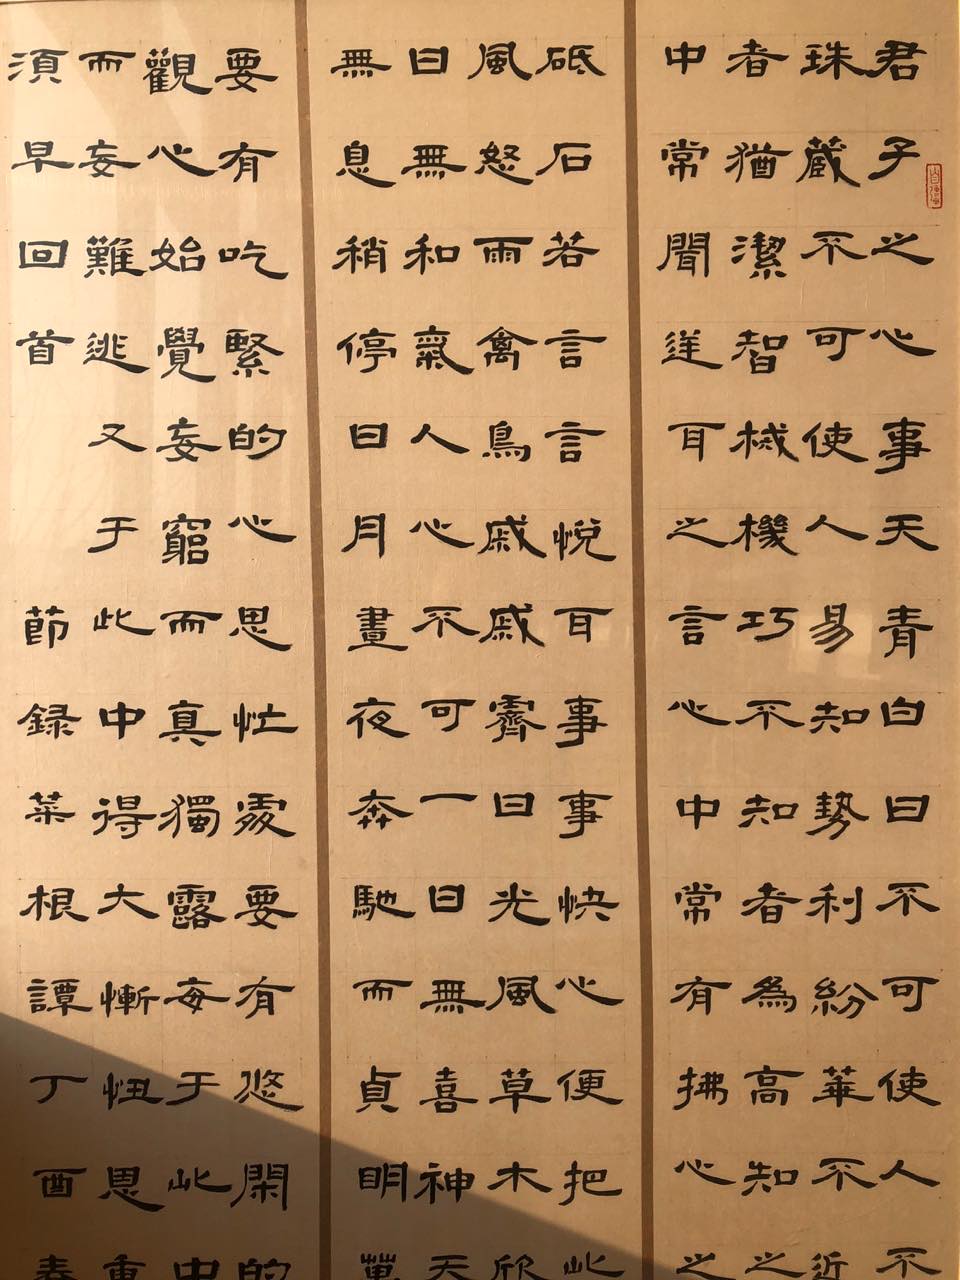 君子之心事天青白日不可使人不
珠蔵不可使人易知勢利紛華不近
者猶潔智械機巧不知者為高知之
中常聞逆耳之言心中常有拂心之
砥石若言言悅耳事事快心便把此
風怒雨禽鳥戚戚霽日光風草木欣
日無和氣人心不可一日無喜神天
無息稍停日月晝夜奔馳而貞明萬
要有吃緊的心思忙處要有悠閑的
觀心始覺妄窮而真獨露每于此中
而妄難逃又于此中得大慚忸思重
須早回首 節録菜根譚丁酉春